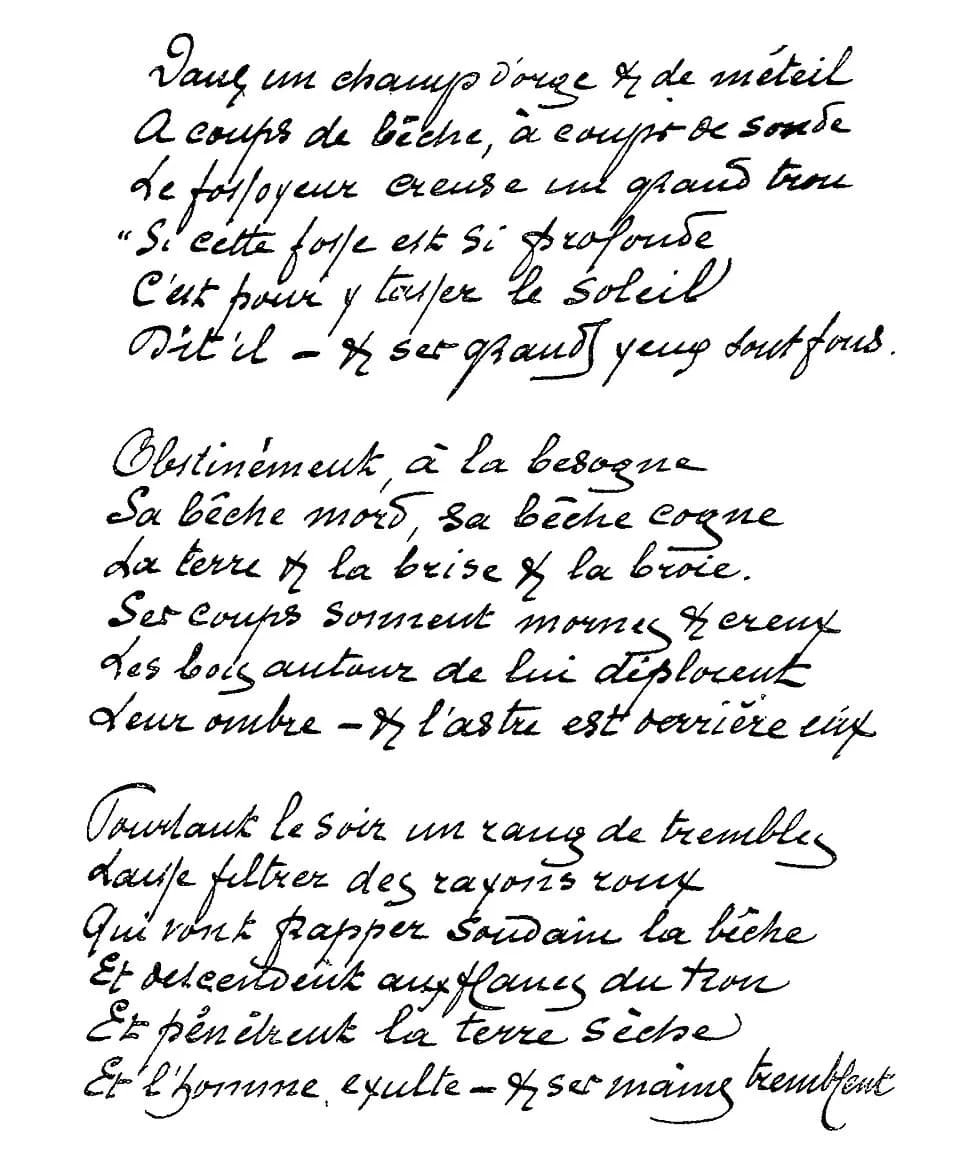 Dans un champ d'orge & de méteil
A coups de bêche, à coups de sonde
Le fossoyeur creuse un grand trou
"Si cette fosse est si profonde
C'est pour y tasser le soleil
Dit'il – & ses grands yeux sont fous.
Obstinément, à la besogne
Sa bêche mord, sa bêche cogne
La terre & la brise & la broie.
Ses coups sonnent mornes & creux
Les bois autour de lui déplorent
Leur ombre – & l'astre est derrière eux
Pourtant le soir un rang de trembles
Laisse filtrer des rayons roux
Qui vont frapper soudain la bêche
Et descendent aux flancs du trou
Et pénètrent la terre sèche
Et l'homme exulte – & ses mains tremblent